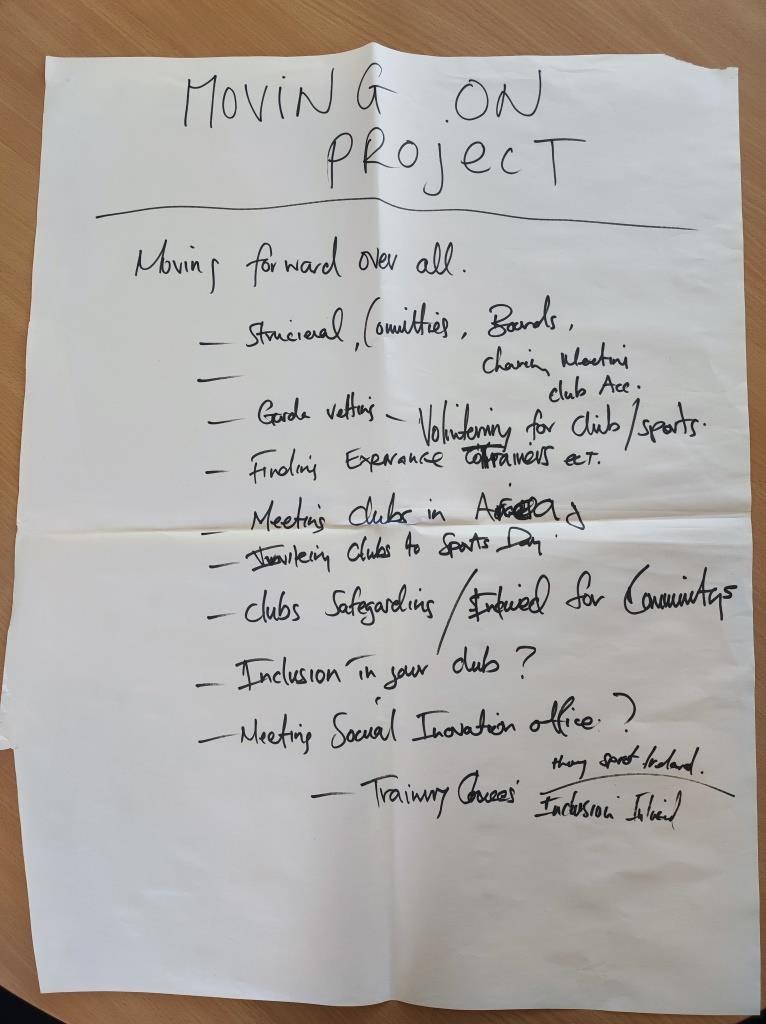 MOVING ON
PROJECT
Moving forward over all.
— Strucieral, Comitties, Boards,
—
Meeting
club Acc.
— Garda vetting — Volinterning for club/sports.
— Finding Experance Trainers ect.
— Meeting clubs in Area
— clubs to Sports Day.
— Clubs Safegarding / for Comunitys
— Inclusion in your club?
— Meeting Social Inovation office.?
— Training sport Ireland.
Inclusion